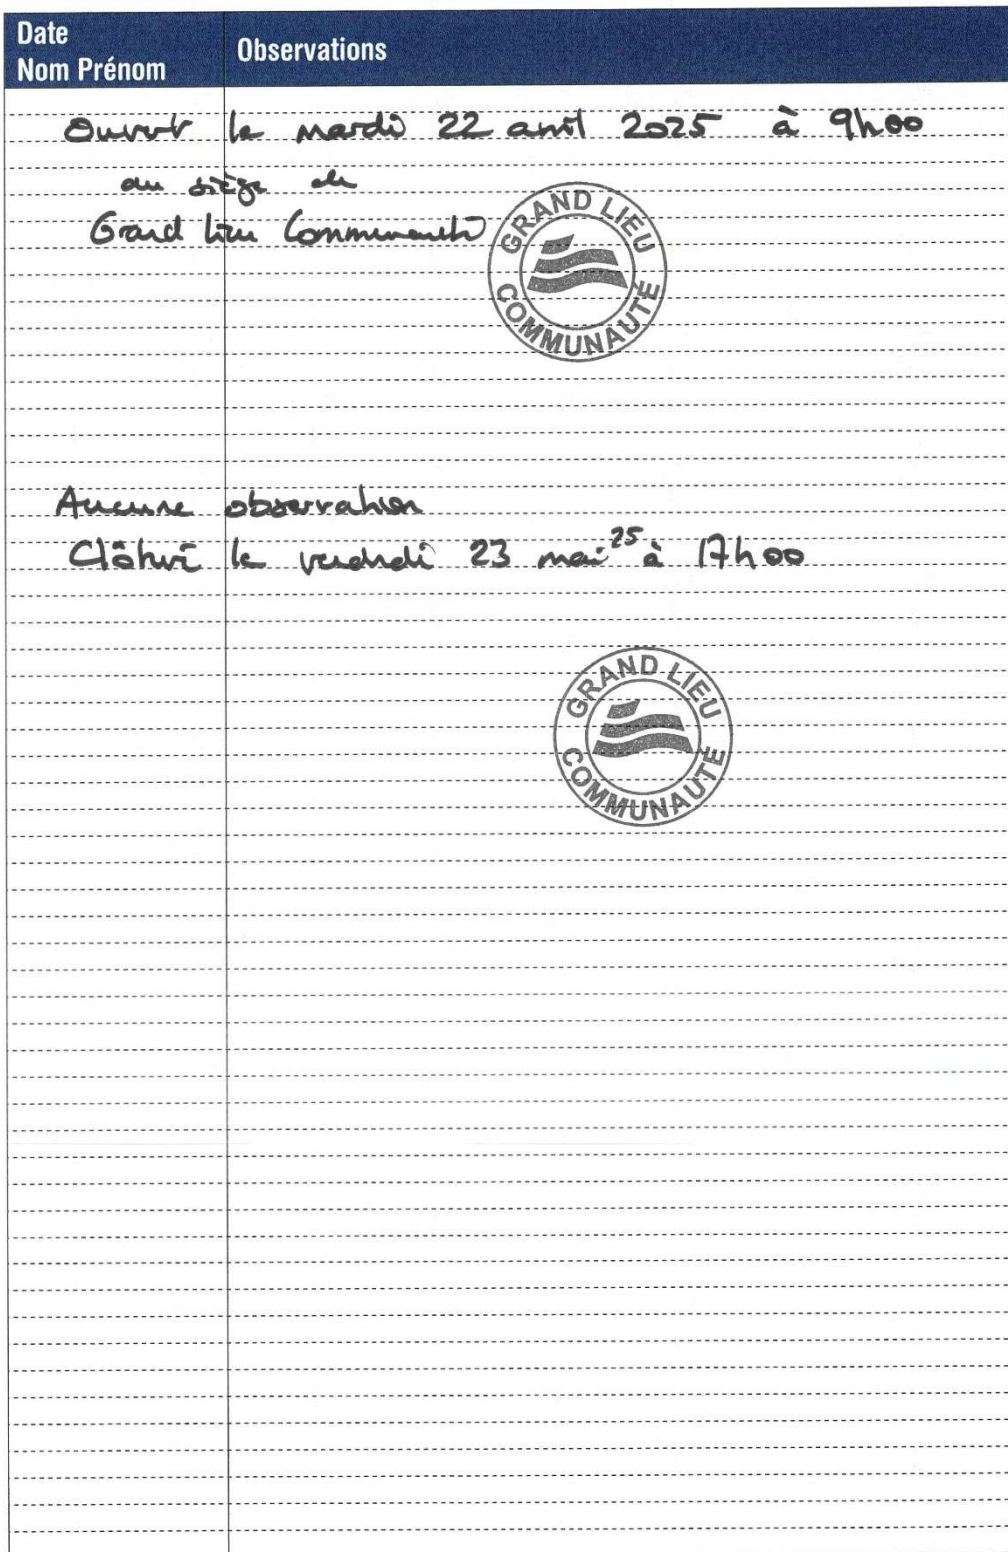 Date
Nom Prénom
Observations
Ouvert le mardi 22 avril 2025 à 9h00
au siège de
Grand Lieu Communauté
GRAND LIEU
COMMUNAUTÉ
Aucune observation
Clôturé le vendredi 23 mai 25 à 17h00
GRAND LIEU
COMMUNAUTÉ